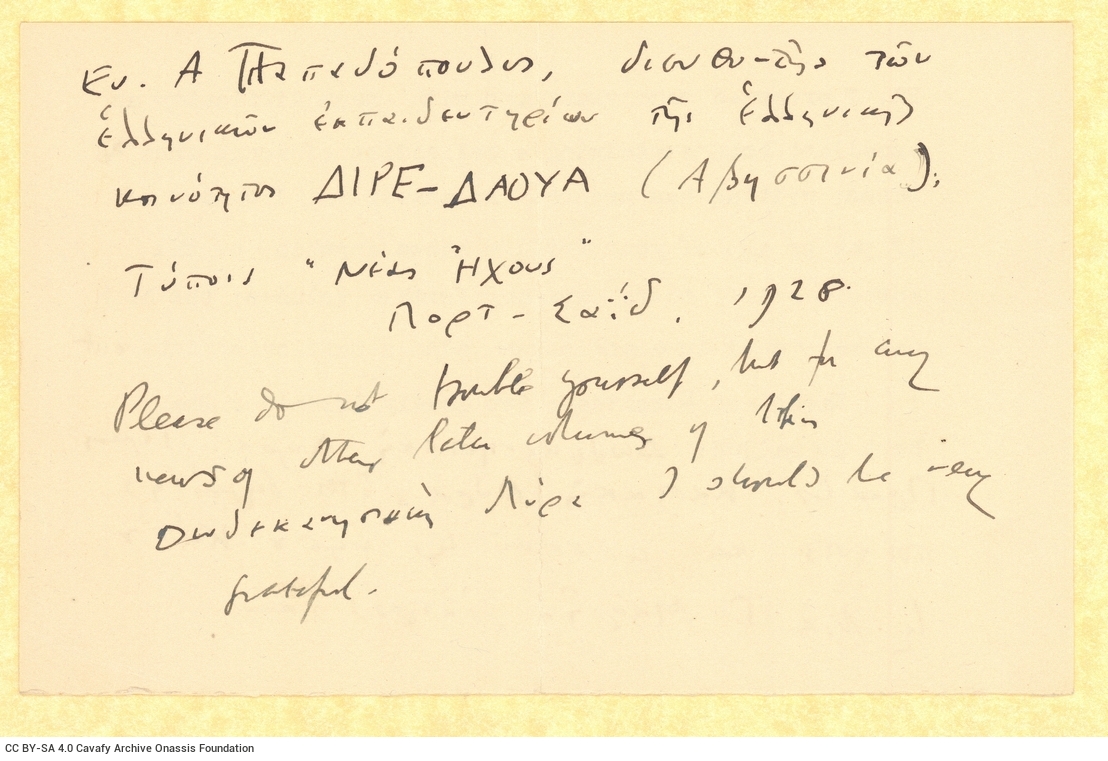 Ευ. Α Παπαδόπουλος, διευθυντής τῶν
ἑλληνικῶν ἐκπαιδευτηρίων τῆς ἑλληνικῆς
κοινότητος ΔΙΡΕ-ΔΑΟΥΑ (Ἀβησσινία).
Τύποις "Νέας Ἠχους"
Πορτ-Σαΐδ. 1928.
Please do not trouble yourself, but for any
news of other later volumes of this
Δωδεκανησιακὴ Λύρα I should be very
grateful.
CC BY-SA 4.0 Cavafy Archive Onassis Foundation